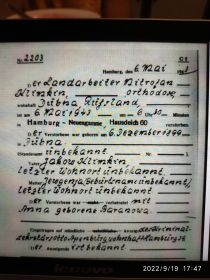 Nr. 2203 C3
Hamburg, den 6. Mai
Der Landarbeiter Mitrofan
Klimkin, orthodox
wohnhaft Dubna Rußland
ist am 6. Mai 1943 um 6 Uhr 30 Minuten
in Hamburg - Neuengamme, Hausdeich 60 verstorben.
Der Verstorbene war geboren am 6. Dezember 1899
in Dubna
(Standesamt unbekannt Nr. )
Vater: Jakow Klimkin,
letzter Wohnort unbekannt
Mutter: Jewgenja Geburtsname unbekannt,
letzter Wohnort unbekannt
Der Verstorbene war verheiratet mit
Anna geborene Baranowa
Eingetragen auf mündliche Anzeige des Kriminal-
sekretärs Otto Apenburg, wohnhaft Hamburg 36
Der Anzeigende ist bekannt
2022/9/19 17:47